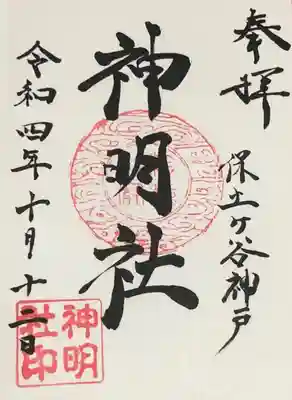 奉拝
保土ヶ谷神戸
神明社
令和四年十月十二日
神明
社印